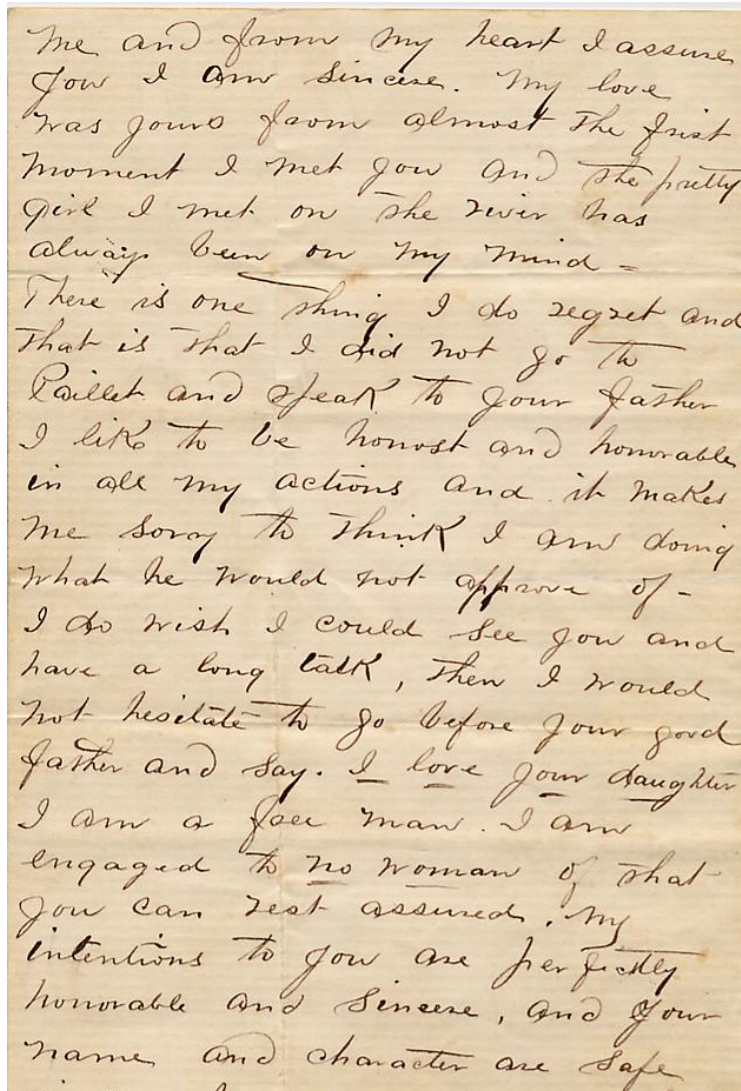 me and from my heart I assure
you I am sincere. My love
was yours from almost the frist
moment I met you and the pretty
girl I met on the river has
always been on my mind =
There is one thing I do regret and
that is that I did not go to
Paillet and speak to your father
I like to be honost and honorable
in all my actions and it makes
me sorry to think I am doing
what he would not approve of -
I do wish I could see you and
have a long talk, then I would
not hesitate to go before your good
father and say. I love your daughter
I am a free man. I am
engaged to no woman of that
you can rest assured. My
intentions to you are perfectly
honorable and sincere, and your
name and character are safe